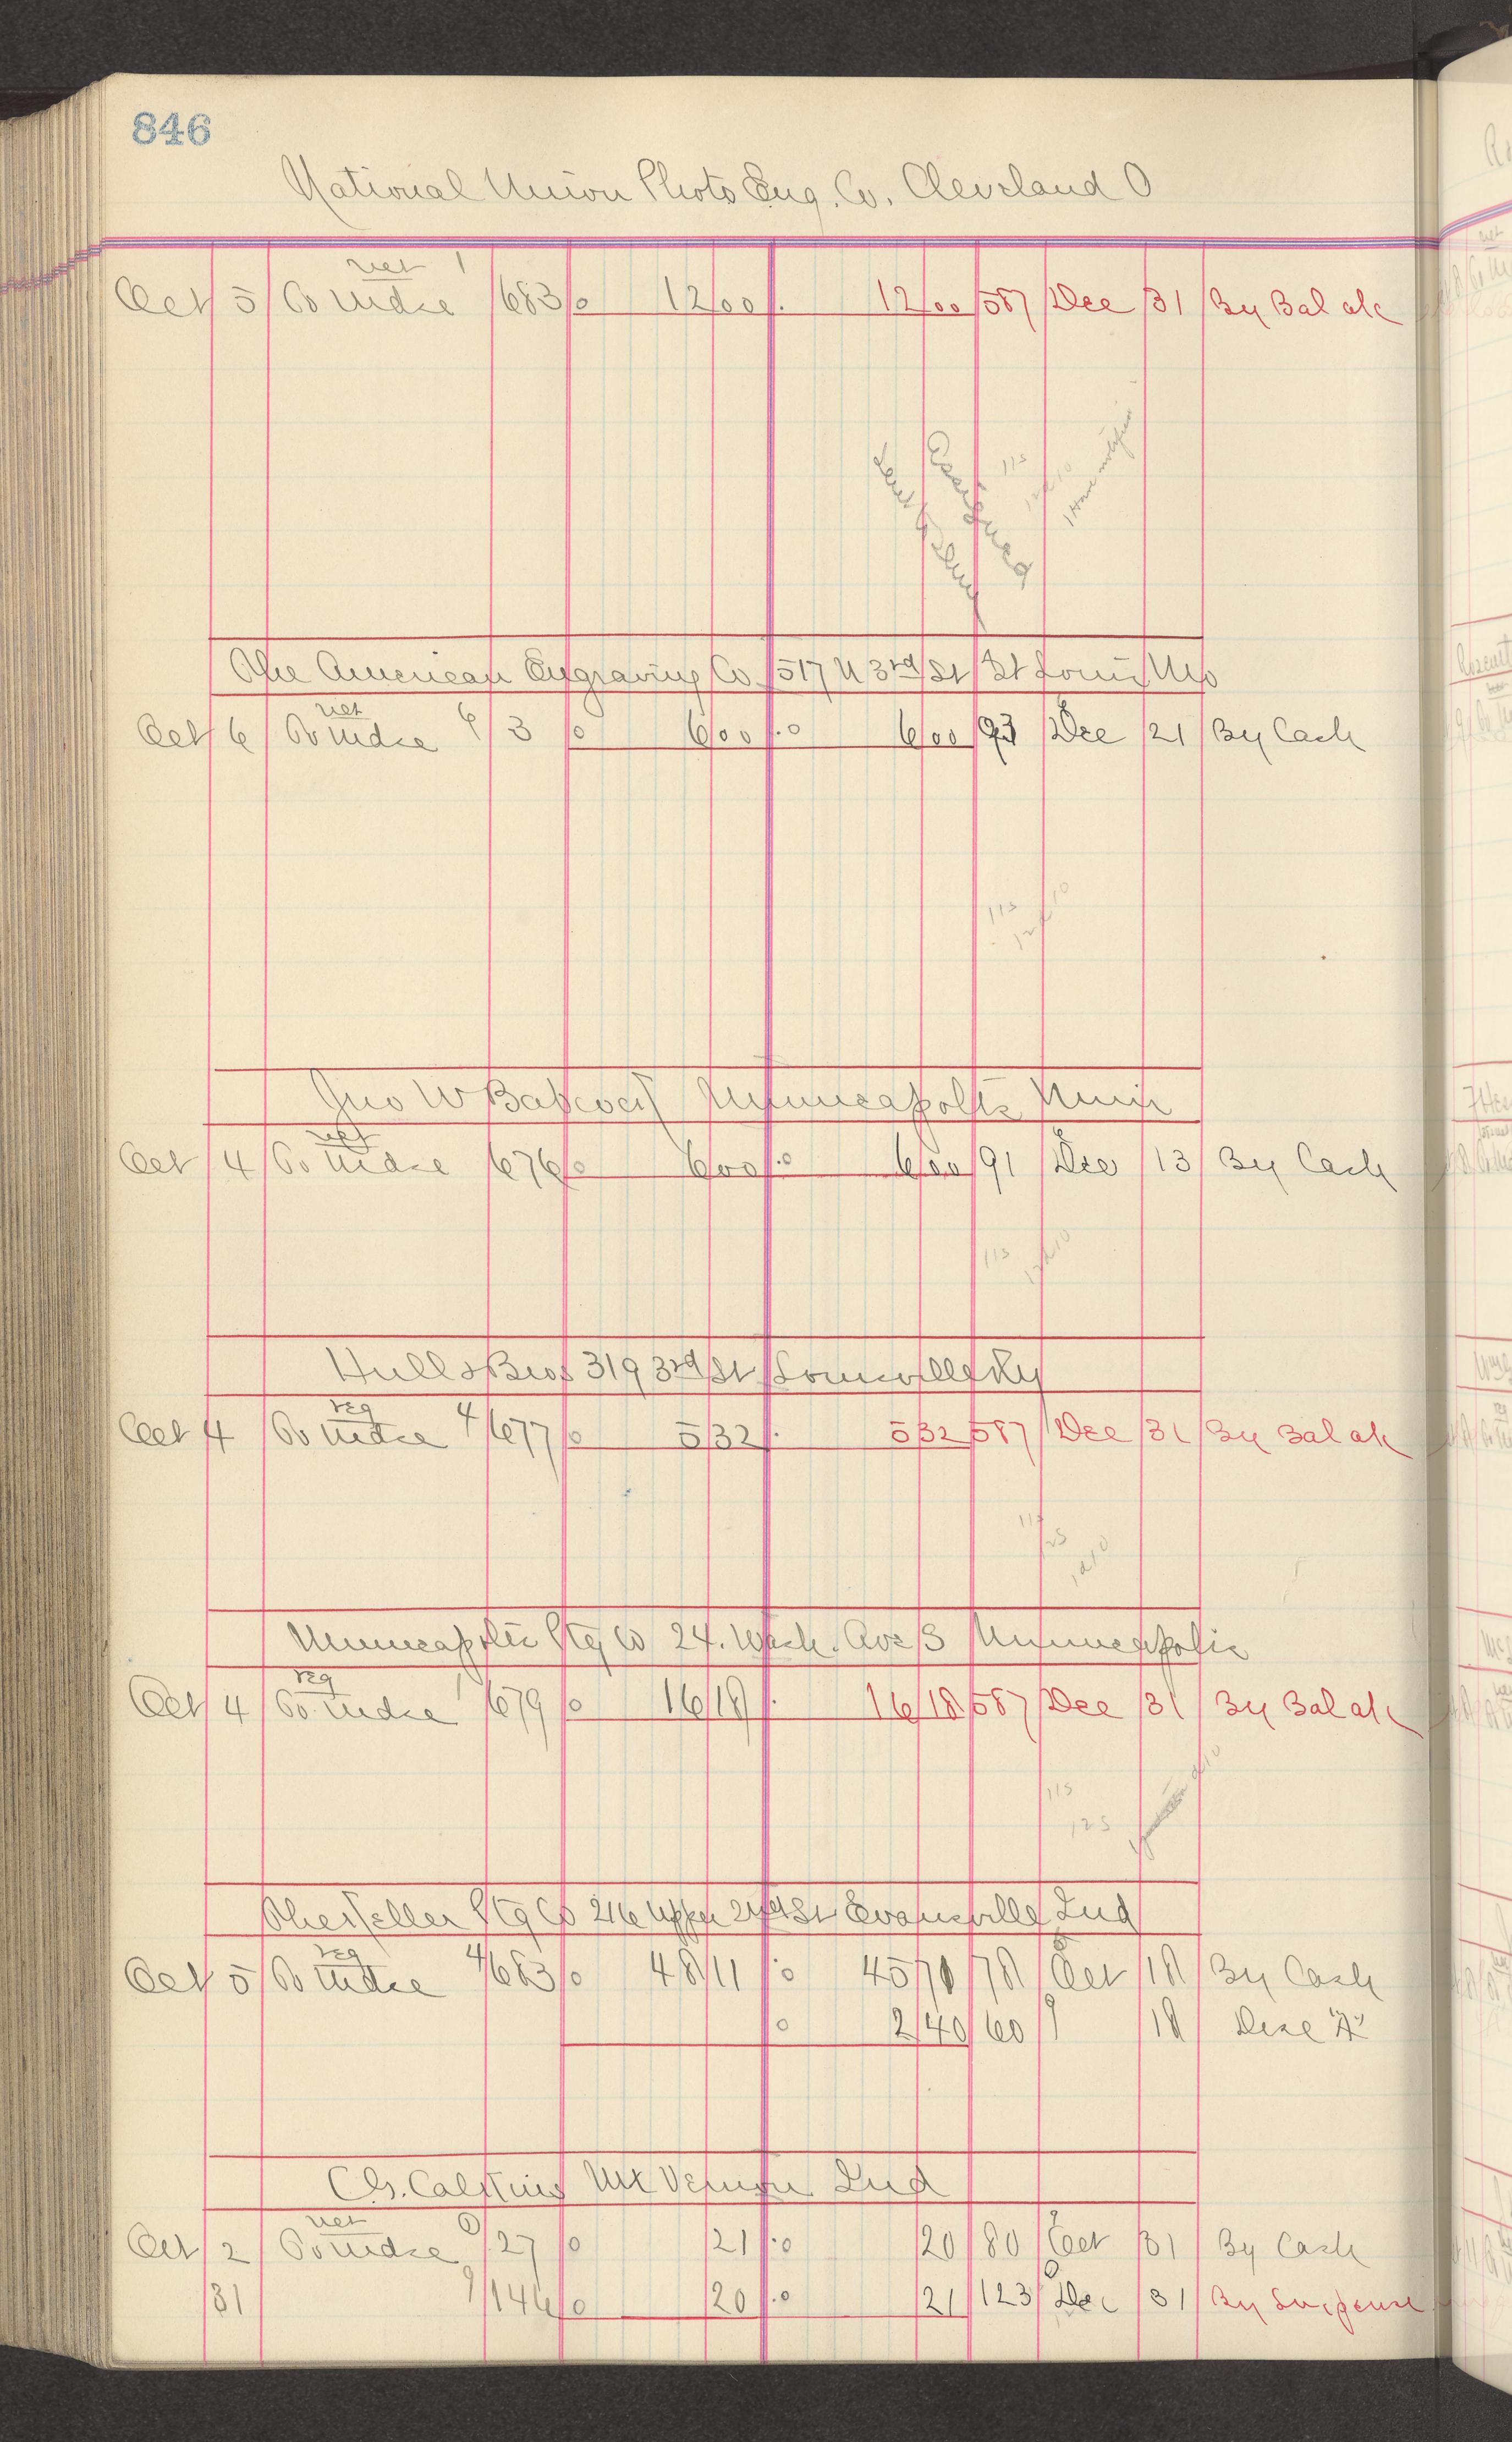 846
National Union Photo Eng. Co. Cleveland O
net 1
Oct 5 To Mdse 683 0 12 00 12 00 587 Dec 31 By Bal ak
115
Assigned
The American Engraving Co 517 N 3rd St St Louis Mo
net 6
Oct 6 To Mdse 3 0 6 00 0 6 00 93 Dec 21 By Cash
115
Jno W Babcock Minneapolis Minn
net
Oct 4 To Mdse 676 0 6 00 0 6 00 91 Dec 13 By Cash
115
Hull & Bros 319 3rd St Louisville Ky
reg 4
Oct 4 To Mdse 677 0 5 32 5 32 587 Dec 31 By Bal ak
Minneapolis Ptg Co 24. Wash. Ave S Minneapolis
reg 1
Oct 4 To Mdse 679 0 16 18 16 18 587 Dec 31 By Bal ak
115
125
The Keller Ptg Co 216 Upper 2nd St Evansville Ind
reg 4
Oct 5 To Mdse 683 0 48 11 0 45 71 78 Oct 18 By Cash
0 2 40 60 18 Disc "A"
Mt Vernon Ind
net
Oct 2 To Mdse 27 0 21 0 20 80 Oct 31 By Cash
31 9 144 0 20 0 21 123 Dec 31 By Suspense